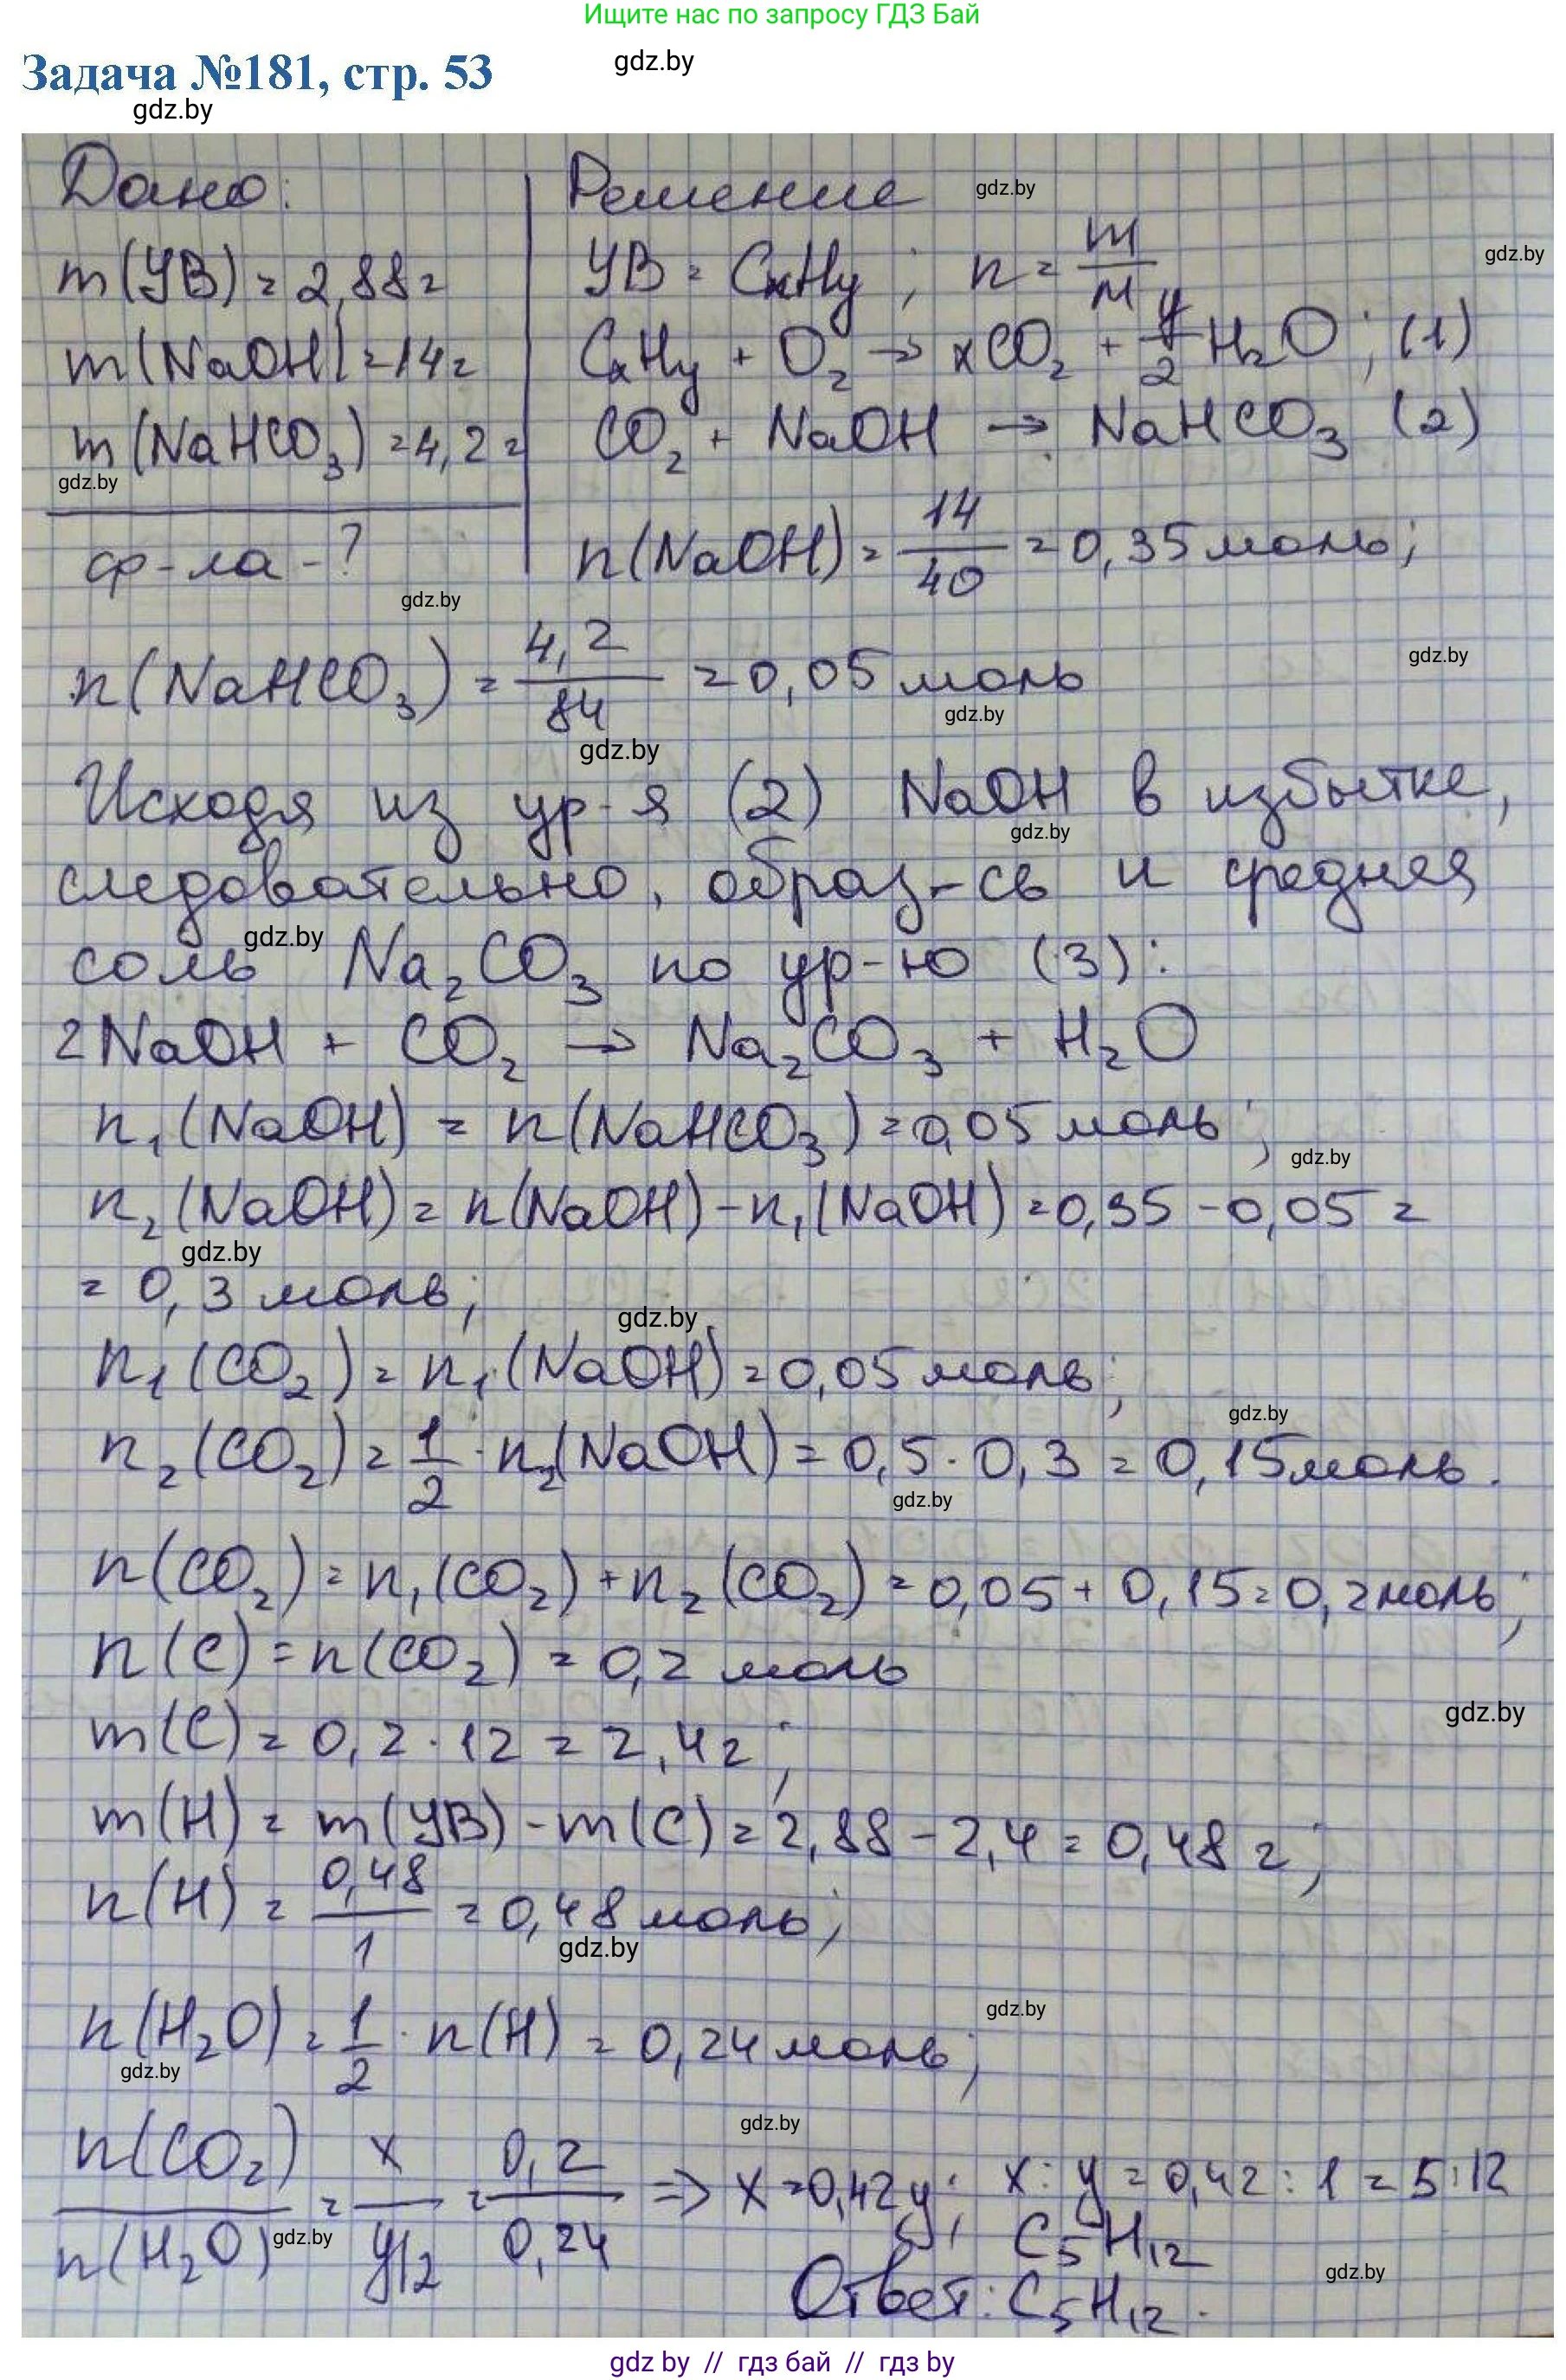 Ищите нас по запросу ГДЗ Бай
Задача №181, стр. 53
gdz.by
gdz.by
Дано:
m(УВ) = 2,88г
m(NaOH) = 14г
m(NaHCO₃) = 4,2г
gdz.by
ф-ла - ?
gdz.by
Решение
gdz.by
УВ = CxHy ; n = m/M
gdz.by
CxHy + O₂ → xCO₂ + y/2 H₂O; (1)
CO₂ + NaOH → NaHCO₃ (2)
n(NaOH) = 14/40 = 0,35 моль;
n(NaHCO₃) = 4,2/84 = 0,05 моль
gdz.by
gdz.by
gdz.by
Исходя из ур-я (2) NaOH в избытке,
gdz.by
следовательно, образ-сь и средняя
соль Na₂CO₃ по ур-ю (3):
gdz.by
2NaOH + CO₂ → Na₂CO₃ + H₂O
n₁(NaOH) = n(NaHCO₃) = 0,05 моль;
gdz.by
n₂(NaOH) = n(NaOH) - n₁(NaOH) = 0,35 - 0,05 =
gdz.by
= 0,3 моль;
gdz.by
n₁(CO₂) = n₁(NaOH) = 0,05 моль;
gdz.by
n₂(CO₂) = 1/2 · n₂(NaOH) = 0,5 · 0,3 = 0,15 моль.
gdz.by
n(CO₂) = n₁(CO₂) + n₂(CO₂) = 0,05 + 0,15 = 0,2 моль;
n(C) = n(CO₂) = 0,2 моль
gdz.by
m(C) = 0,2 · 12 = 2,4г;
m(H) = m(УВ) - m(C) = 2,88 - 2,4 = 0,48 г;
n(H) = 0,48/1 = 0,48 моль;
gdz.by
gdz.by
n(H₂O) = 1/2 · n(H) = 0,24 моль;
gdz.by
gdz.by
n(CO₂)/n(H₂O) = x/y/2 = 0,2/0,24 => x = 0,42y; x : y = 0,42 : 1 = 5:12
gdz.by
C₅H₁₂
gdz.by
Ответ: C₅H₁₂.
gdz by // гдз бай // гдз by